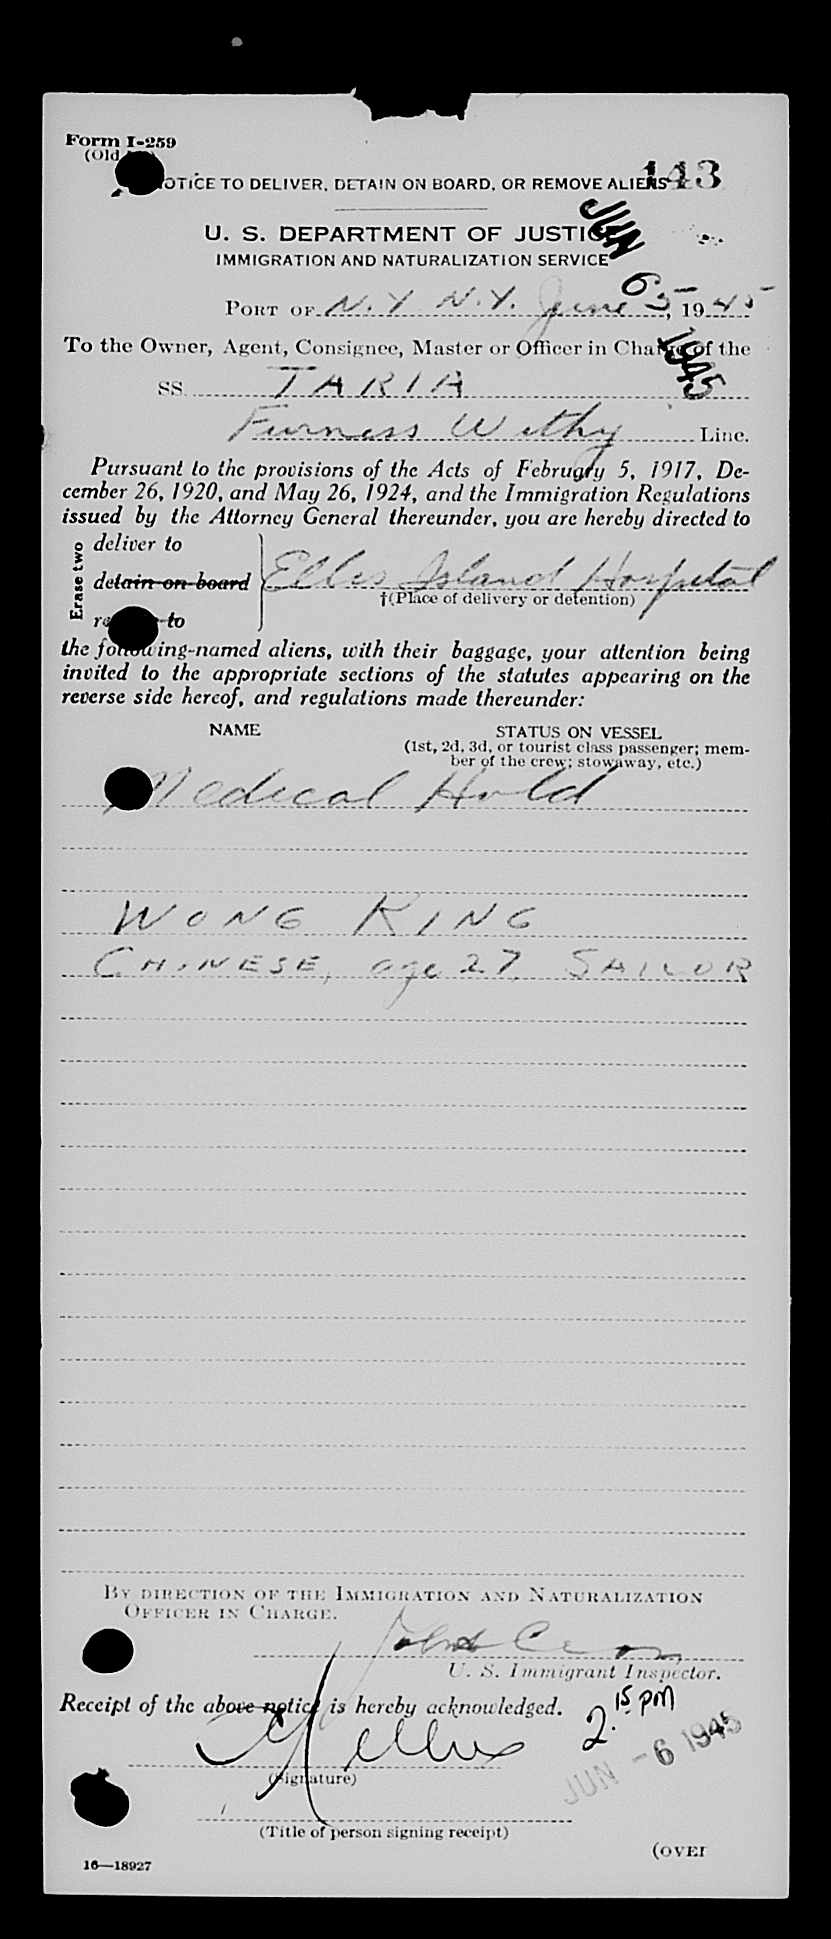 Form I-259
(Old
OTICE TO DELIVER, DETAIN ON BOARD, OR REMOVE ALIENS 143
U. S. DEPARTMENT OF JUSTICE
IMMIGRATION AND NATURALIZATION SERVICE
JUN 6 1945
PORT OF N.Y N.Y. June 5, 1945
To the Owner, Agent, Consignee, Master or Officer in Charge of the
SS. TARIA
Furness Withy Line.
Pursuant to the provisions of the Acts of February 5, 1917, De-
cember 26, 1920, and May 26, 1924, and the Immigration Regulations
issued by the Attorney General thereunder, you are hereby directed to
Erase two
deliver to
detain on board Ellis Island Hospital
†(Place of delivery or detention)
to
the following-named aliens, with their baggage, your attention being
invited to the appropriate sections of the statutes appearing on the
reverse side hereof, and regulations made thereunder:
NAME STATUS ON VESSEL
(1st, 2d, 3d, or tourist class passenger; mem-
ber of the crew; stowaway, etc.)
Medical Hold
WONG KING
CHINESE, age 27 SAILOR
BY DIRECTION OF THE IMMIGRATION AND NATURALIZATION
OFFICER IN CHARGE.
U. S. Immigrant Inspector.
Receipt of the above notice is hereby acknowledged.
2.15 PM
JUN -6 1945
(Signature)
(Title of person signing receipt)
(OVER
16—18927